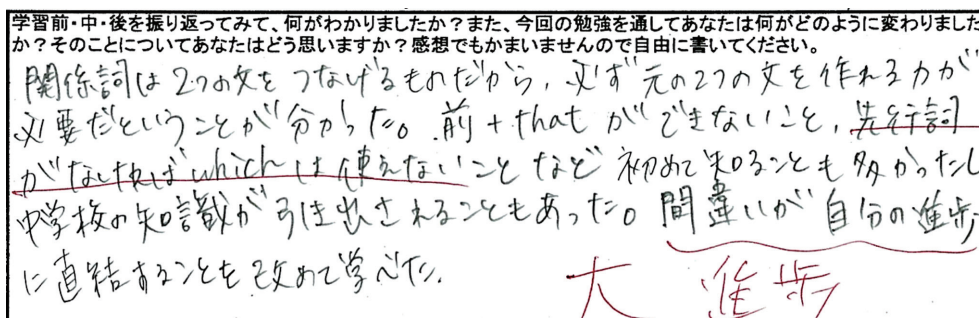 学習前・中・後を振り返ってみて、何がわかりましたか？また、今回の勉強を通してあなたは何がどのように変わりました
か？そのことについてあなたはどう思いますか？感想でもかまいませんので自由に書いてください。
関係詞は2つの文をつなげるものだから、必ず元の2つの文を作れる力が
必要だということが分かった。前+thatができないこと、先行詞
がなければwhichは使えないことなど初めて知ることも多かったし
中学校の知識が引き出されることもあった。間違いが自分の進歩
に直結することを改めて学んだ。
大進歩